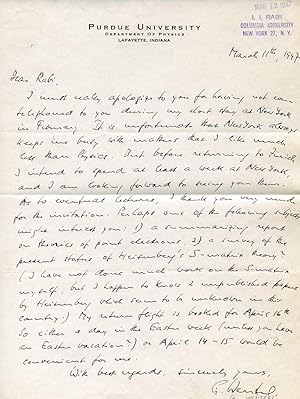 PURDUE UNIVERSITY
DEPARTMENT OF PHYSICS
LAFAYETTE, INDIANA
MAR 12 1947
I. I. RABI
COLUMBIA UNIVERSITY
NEW YORK 27, N.Y.
March 11th, 1947
Dear Rabi,
I must really apologize to you for having not
telephoned to you during my short stay at New York
in February. It is unfortunate that New York always
keeps me busy with matters that I like much
less than Physics. But before returning to Zürich
I intend to spend at least a week at New York,
and I am looking forward to seeing you then.
As to eventual lectures, I thank you very much
for the invitation. Perhaps one of the following subjects
might interest you: 1) a summarizing report
on theories of point electrons, 2) a survey of the
present status of Heisenberg's S-matrix theory?
(I have not done much work on the S-matrix
myself, but I happen to know 2 unpublished papers
by Heisenberg which seem to be unknown in this
country.) My return flight is booked for April 16th
So either a day in the Easter week (unless you have
an Easter vacation?) or April 14-15 would be
convenient for me.
With best regards, sincerely yours,
G. Wentzel